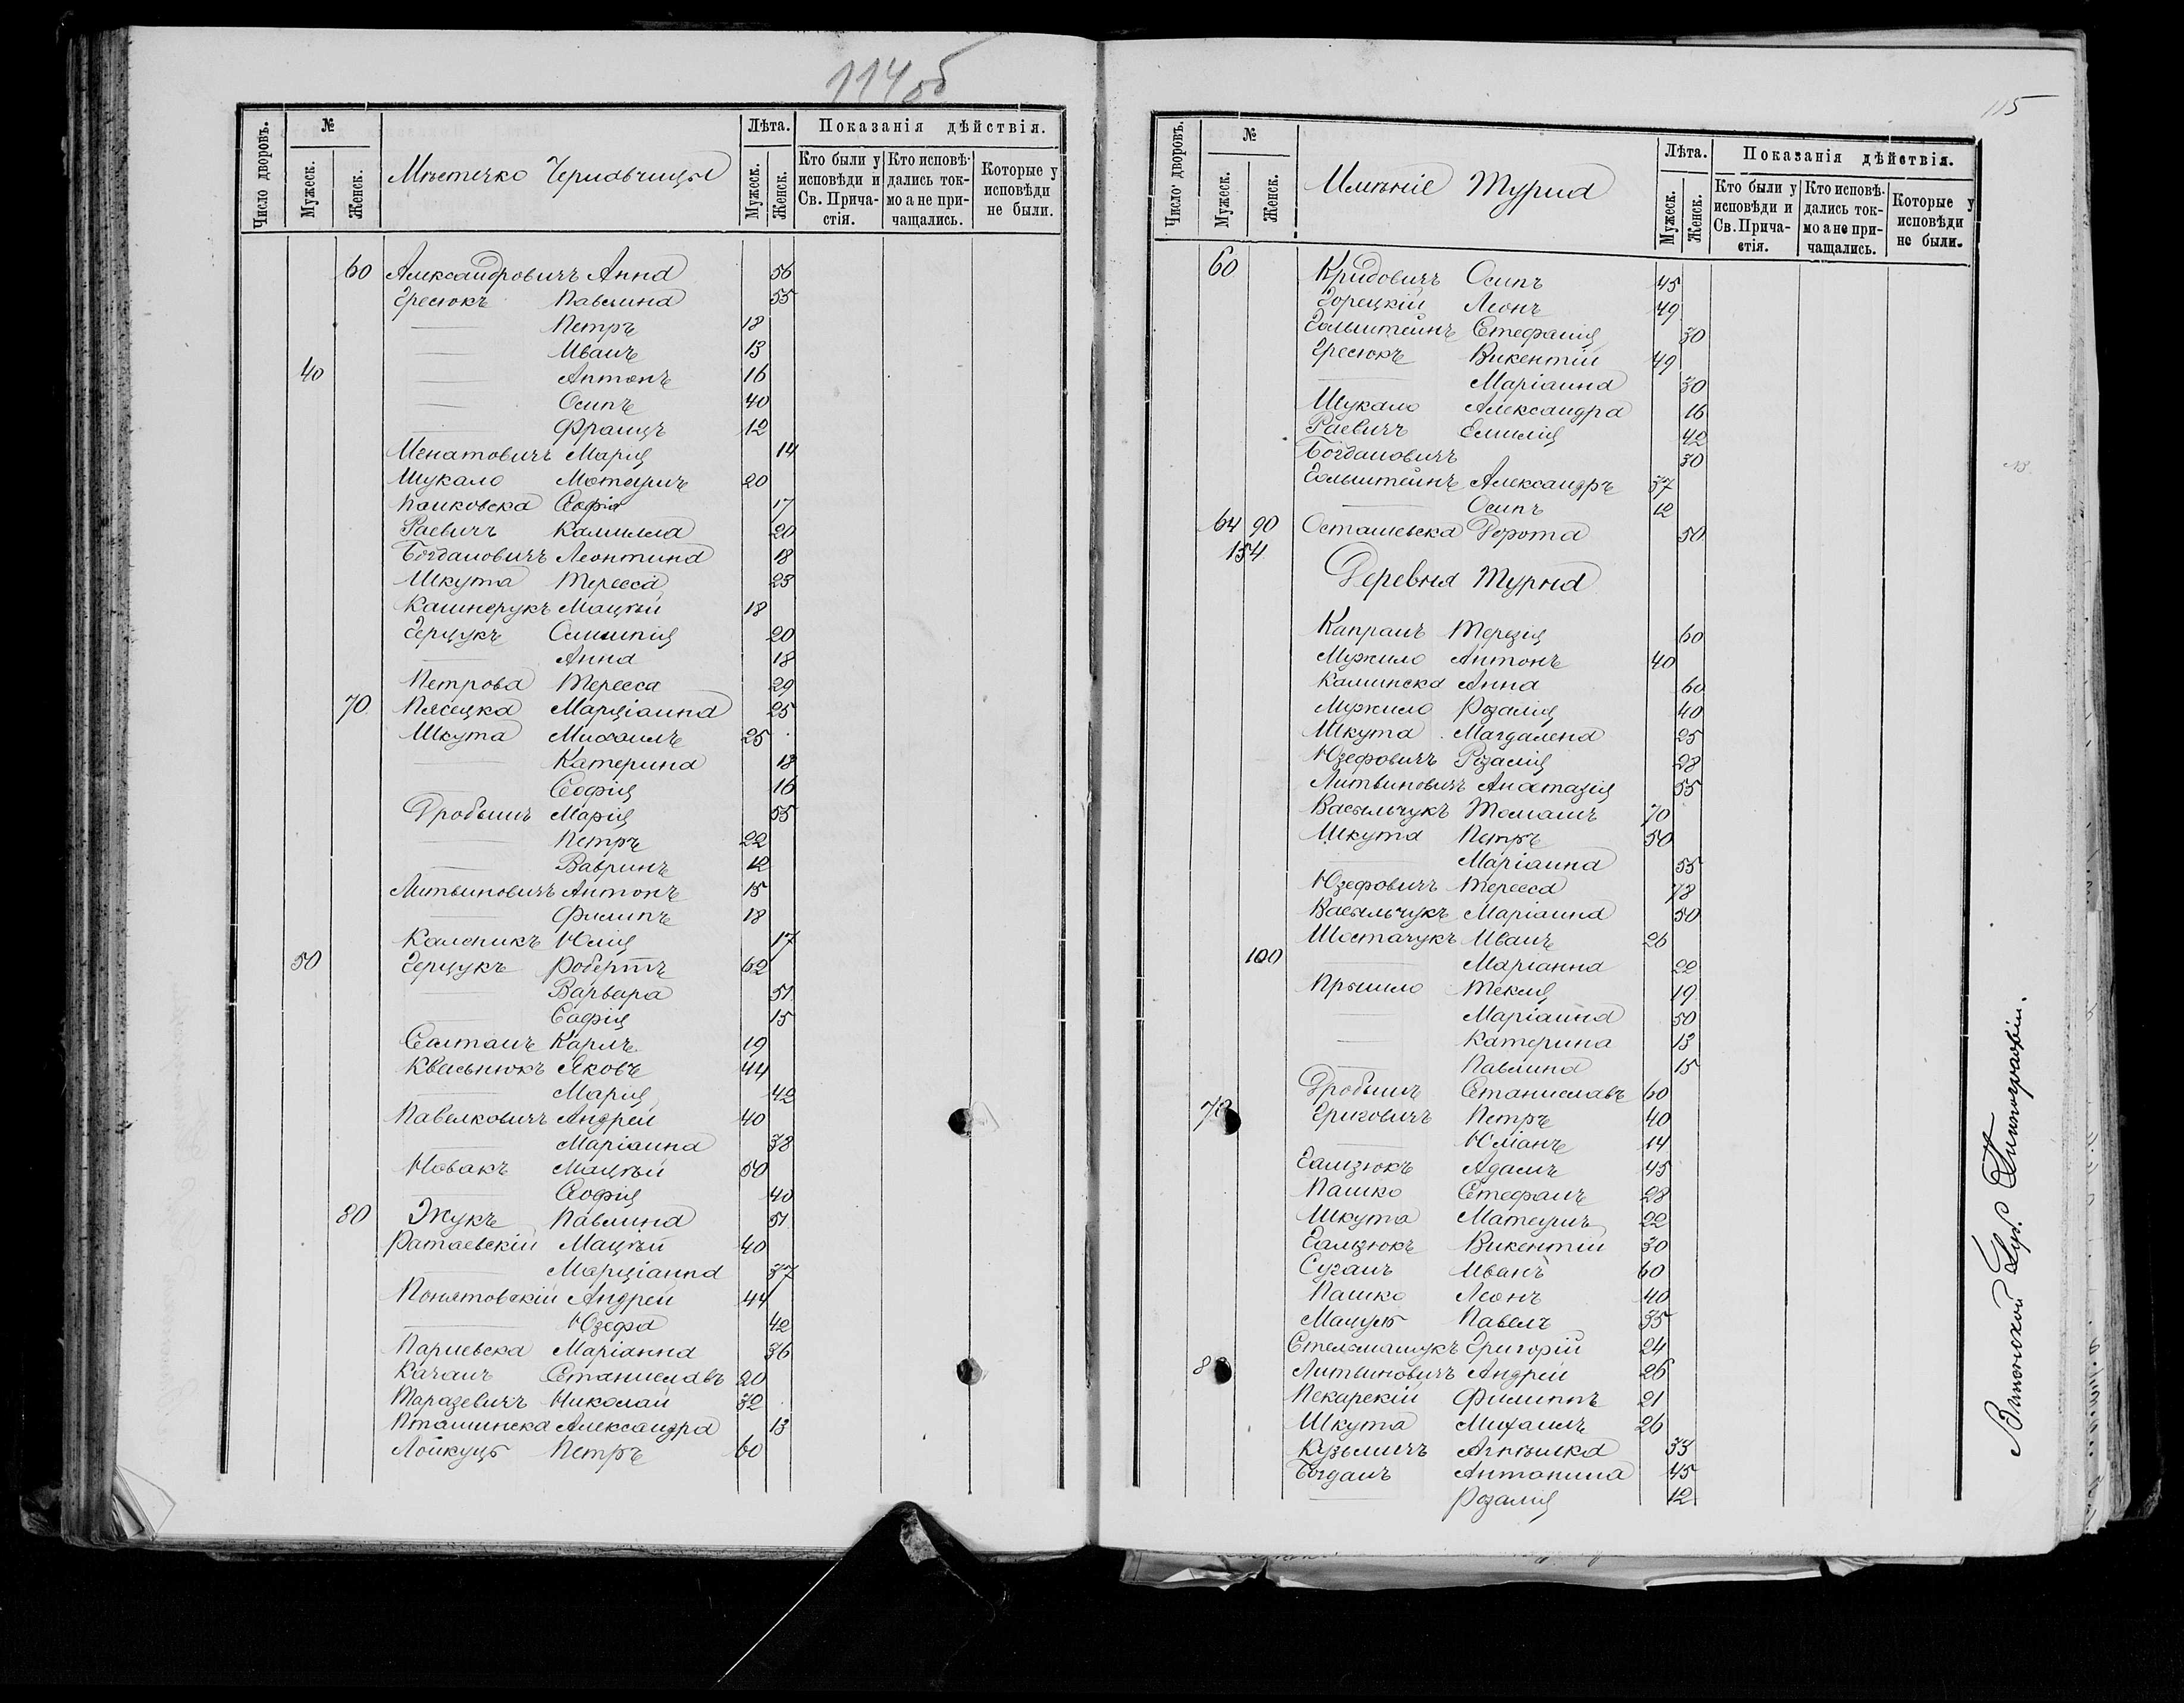 114 об
Число дворовъ.
№
Мужеск.
Женск.
Мѣстечко Чернавчицы
Лѣта.
Мужеск.
Женск.
Показанія дѣйствія.
Кто были у исповѣди и Св. Прича- стія.
Кто исповѣ- дались ток- мо а не при- чащались.
Которые у исповѣди не были.
60 Александровичъ Анна 56
Гресюкъ Павлина 55
—— Петръ 18
—— Иванъ 13
40 —— Антонъ 16
—— Осипъ 40
—— Францъ 12
Игнатовичъ Марія 14
Шукало Матеушъ 20
Панковска Софія 17
Раевичъ Камилла 20
Богдановичъ Леонтина 18
Шкута Тересса 23
Кашнерукъ Мацѣй 18
Герцукъ Олимпія 20
—— Анна 18
Петрова Тересса 29
70 Пясецка Марціанна 25
Шкута Михаилъ 25
—— Катерина 18
—— Софія 16
Дробышъ Марія 55
—— Петръ 22
—— Вавринъ 12
Литвиновичъ Антонъ 15
—— Филипъ 18
Каленикъ Юлія 17
50 Герцукъ Робертъ 62
—— Варвара 51
—— Софія 15
Салтанъ Карлъ 19
Квасьнюкъ Яковъ 44
—— Марія 42
Павелковичъ Андрей 40
—— Маріанна 38
Новакъ Мацѣй 50
—— Софія 40
80 Жукъ Павлина 51
Ратаевскій Мацѣй 40
—— Марціанна 37
Понятовскій Андрей 44
—— Юзефа 42
Париевска Маріанна 36
Качанъ Станиславъ 20
Таразевичъ Николай 32
Пташинска Александра 13
Лойкуцъ Петръ 60
115
Число дворовъ.
№
Мужеск.
Женск.
Имѣніе Турна
Лѣта.
Мужеск.
Женск.
Показанія дѣйствія.
Кто были у исповѣди и Св. Прича- стія.
Кто исповѣ- дались ток- мо а не при- чащались.
Которые у исповѣди не были.
60 Кридовичъ Осипъ 45
Горецкій Леонъ 49
Гольштейнъ Стефанія 30
Гресюкъ Викентій 49
—— Маріанна 30
Шукало Александра 16
Раевичъ Емилія 42
Богдановичъ 30
Гольштейнъ Александръ 37
—— Осипъ 12
64 90 Осташевска Дорота 50
154
Деревня Турна
Капранъ Терезія 60
Мужило Антонъ 40
Калинска Анна 60
Мужило Розалія 40
Шкута Магдалена 25
Юзефовичъ Розалія 28
Литвиновичъ Анатазія 55
Васыльчукъ Томашъ 70
Шкута Петръ 50
—— Маріанна 55
Юзефовичъ Тересса 78
Васыльчукъ Маріанна 50
Шостачукъ Иванъ 26
100 —— Маріанна 22
Прышло Текля 19
—— Маріанна 50
—— Катерина 13
—— Павлина 15
Дробышъ Станиславъ 60
Григовичъ Петръ 40
—— Юліанъ 14
Галызюкъ Адамъ 45
Пашко Стефанъ 28
Шкута Матеушъ 22
Галызюкъ Викентій 30
Суганъ Иванъ 60
Пашко Леонъ 40
Мацукъ Павелъ 35
Стельмашукъ Григорій 24
Литвиновичъ Андрей 26
Пекарскій Филиппъ 21
Шкута Михаилъ 26
Кузьмичъ Агнѣшка 33
Богданъ Антонина 45
—— Розалія 12
Виленской Губ. Типографіи.